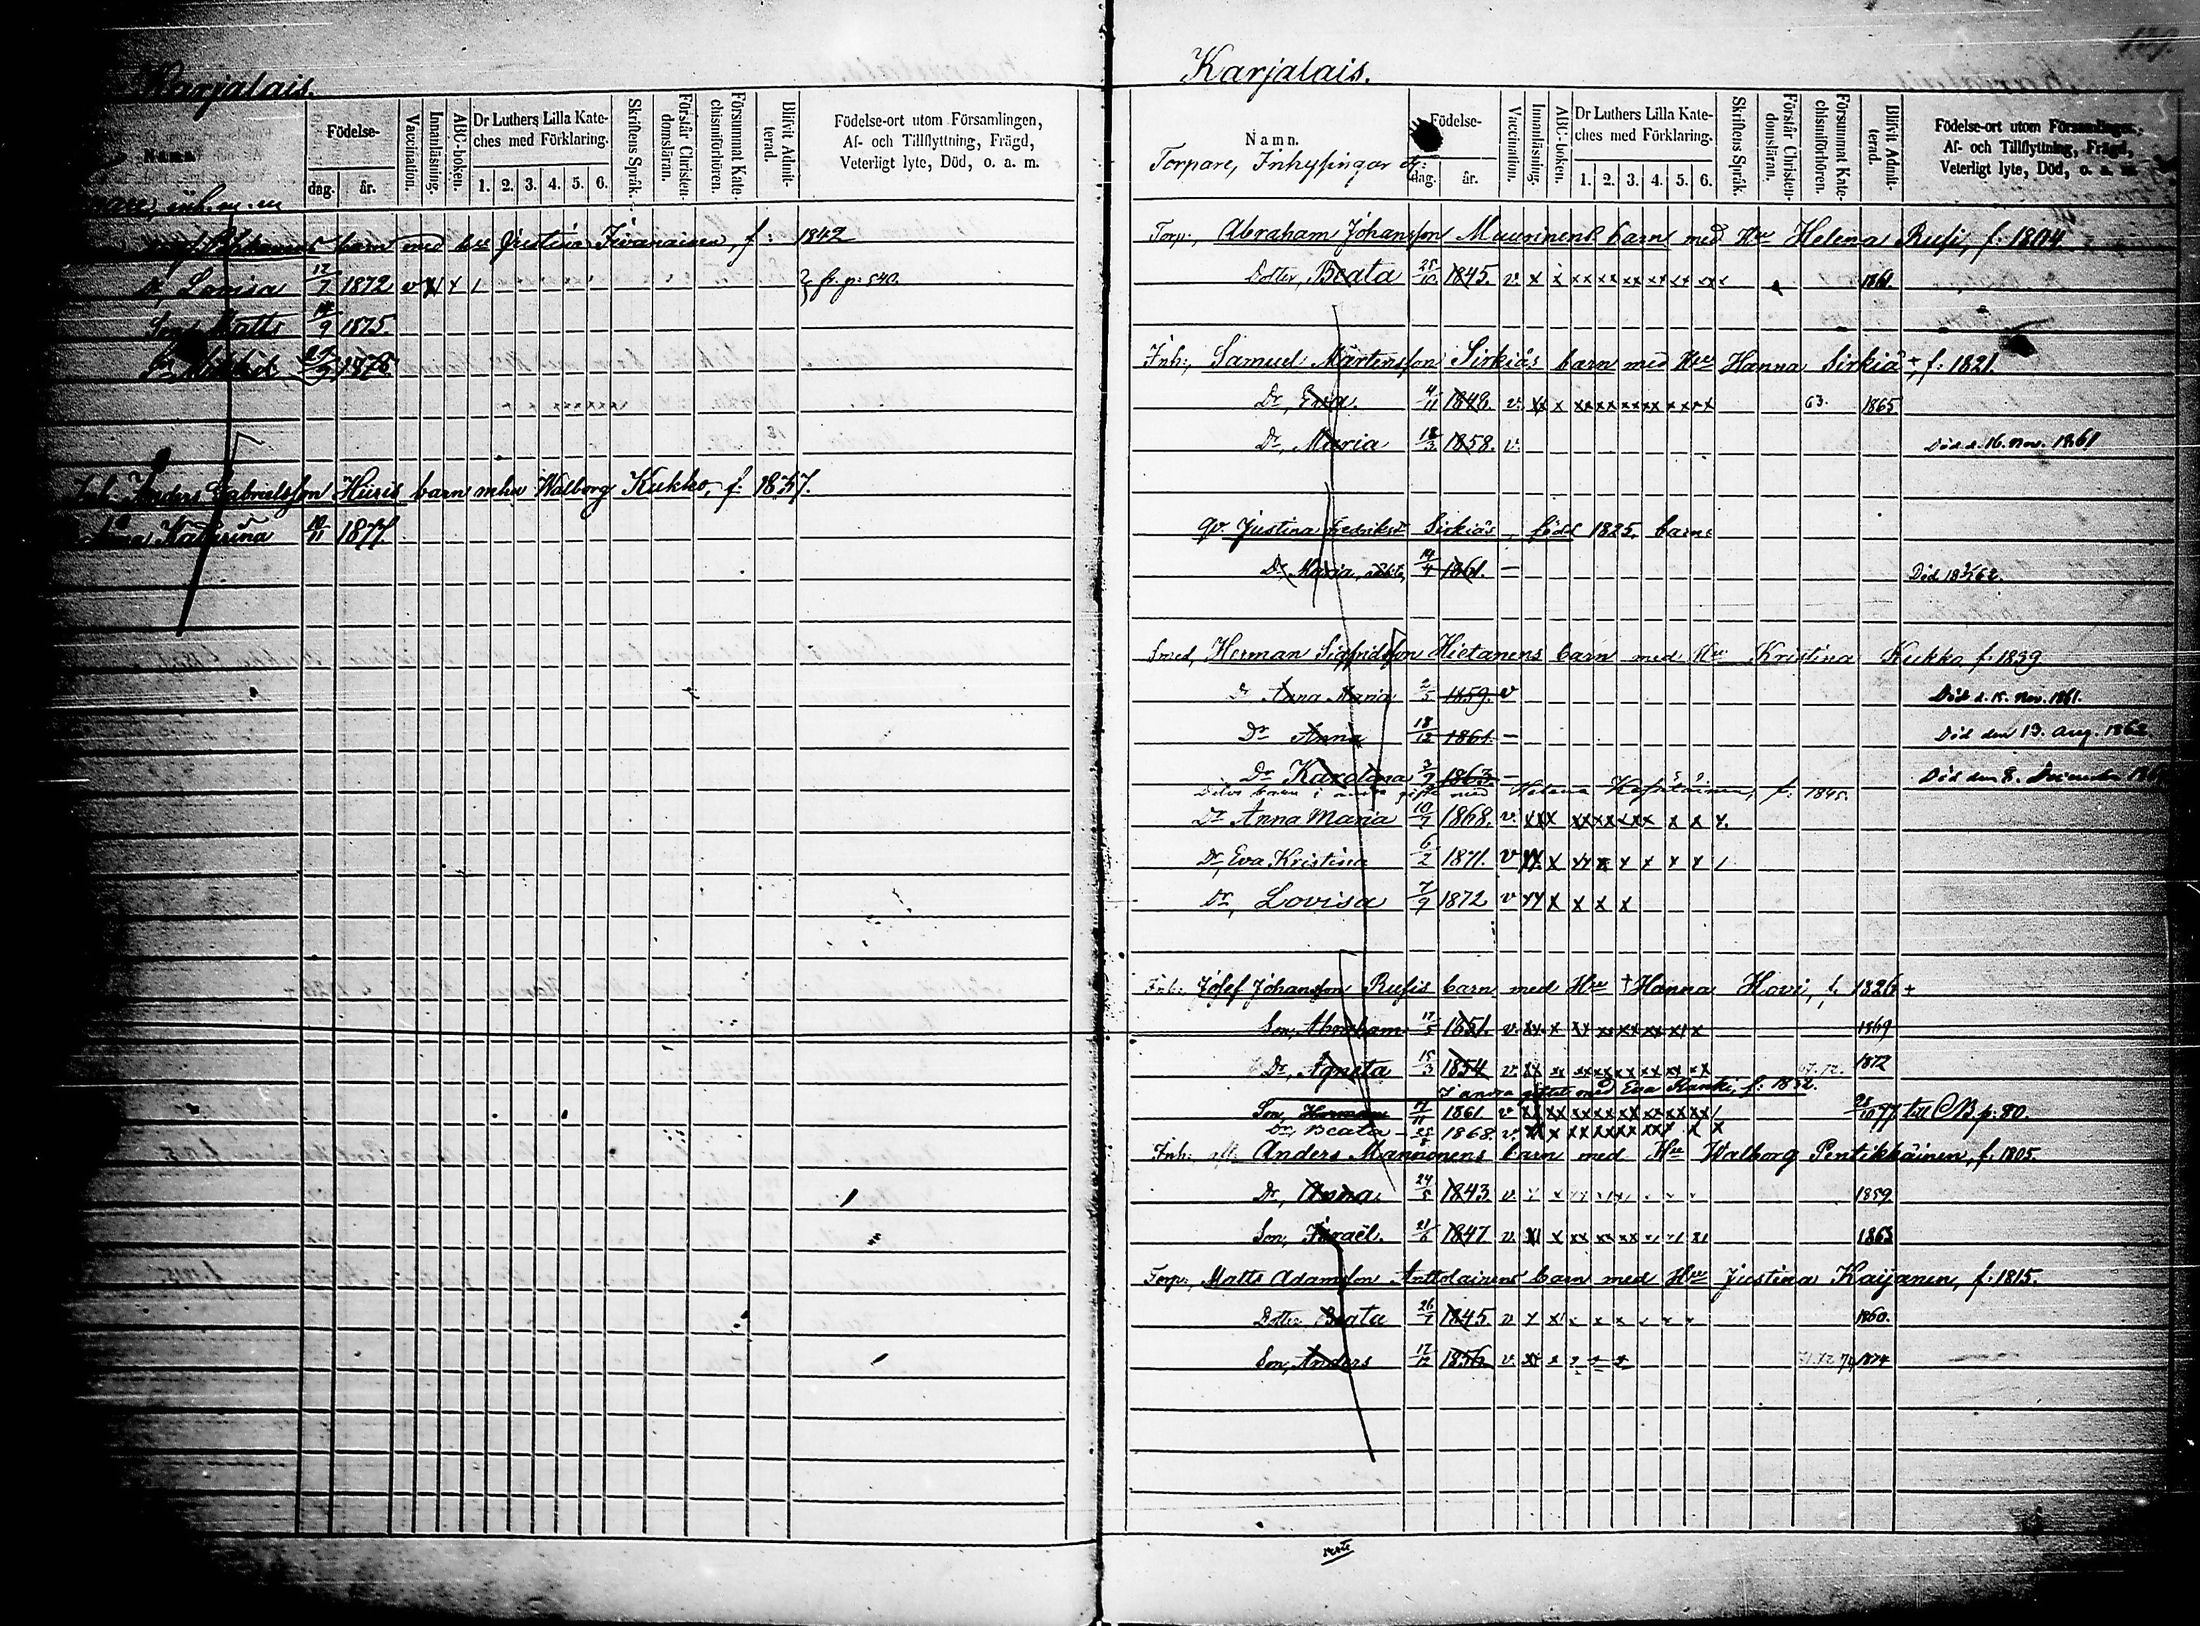 Karjalais.
Namn.
Födelse-
dag.
år.
Vaccination.
Innanläsning.
ABC-boken.
Dr Luthers Lilla Kate-
ches med Förklaring.
1. 2. 3. 4. 5. 6.
Skriftens Språk.
Förstår Christen-
domsläran.
Försummat Kate-
chismiförhören.
Blifvit Admit-
terad.
Födelse-ort utom Församlingen,
Af- och Tillflyttning, Frägd,
Veterligt lyte, Död, o. a. m.
inh. m. m
barn med hu Justina Iivanainen, f: 1842
Dr, Lovisa 12/7 1872 v fr. p: 540.
Son, Matts 14/9 1875
Inh. Anders Gabrielsson Hüris barn mhu Walborg Kukko, f: 1837.
Katarina 10/11 1877
Karjalais.
Namn.
Torpare, Inhysingar
Födelse-
dag.
år.
Vaccination.
Innanläsning.
ABC-boken.
Dr Luthers Lilla Kate-
ches med Förklaring.
1. 2. 3. 4. 5. 6.
Skriftens Språk.
Förstår Christen-
domsläran.
Försummat Kate-
chismiförhören.
Blifvit Admit-
terad.
Födelse-ort utom Församlingen,
Af- och Tillflyttning, Frägd,
Veterligt lyte, Död, o. a. m.
Torp:, Abraham Johansson Maurinens barn med Hru Helena Rusi, f: 1804
Dotter, Beata 25/10 1845. v. x x xx xx xx xx xx xx 1861.
Inh:, Samuel Mårtensson Sirkiäs barn med Hru Hanna Sirkiä +, f: 1821.
Dr, Eva. 4/11 1848. v. xx x xx xx xx xx xx xx 63. 1865
Dr, Maria 18/3 1858. v. Död d. 16. Nov. 1861
Qv. Justina Fredriksdr Sirkiäs, född 1825, barn:
Dr Maria, oäkta, 14/4 1861. — Död 62.
Smed, Herman Sigfridsson Hietanens barn med Hru Kristina Kukko f: 1839
Dr Anna Maria 2/5 1859. v Död d. 15. Nov. 1861.
Dr Anna 18/12 1861 — Död den 13. Aug. 1862
Dr Karolina 3/9 1863 — Död den 8. December
barn i andra gifte med Helena f: 1845.
Dr Anna Maria 10/7 1868. v. xxx xx xx xx x x x.
Dr, Eva Kristina 6/2 1871. v xx x xx x x x x x /
Dr, Lovisa 7/9 1872 v xx x x x x
Inh: Josef Johansson Rusis barn med Hru † Hanna Hovi, f. 1826 +
Son, Abraham 17/5 1851. v. xx x xx xx xx xx xx x 1869
Dr, Agneta 15/3 1854 v. xx xx xx xx xx xx xx xx 1872
I andra giftet med Eva Kanki, f: 1832.
Son, Herman 17/11 1861 v xx xx xx xx xx xx xx xx / 28/10 77 till CB p: 80.
Dr, Beata 25/8 1868. v. xx x xx xx xx xx x x
Inh: Anders Mannonens barn med Hru Walborg Pentikkäinen, f: 1805.
Dr, Anna. 24/5 1843 v. 1859
Son, Israël. 21/6 1847 v. 1863
Torp:, Matts Adamsson Anttolainens barn med Hru Justina Kaijanen, f: 1815.
Dotter Beata 26/7 1845 v x 1860.
Son, Anders 17/12 1856 v. 71. 72 74 1874